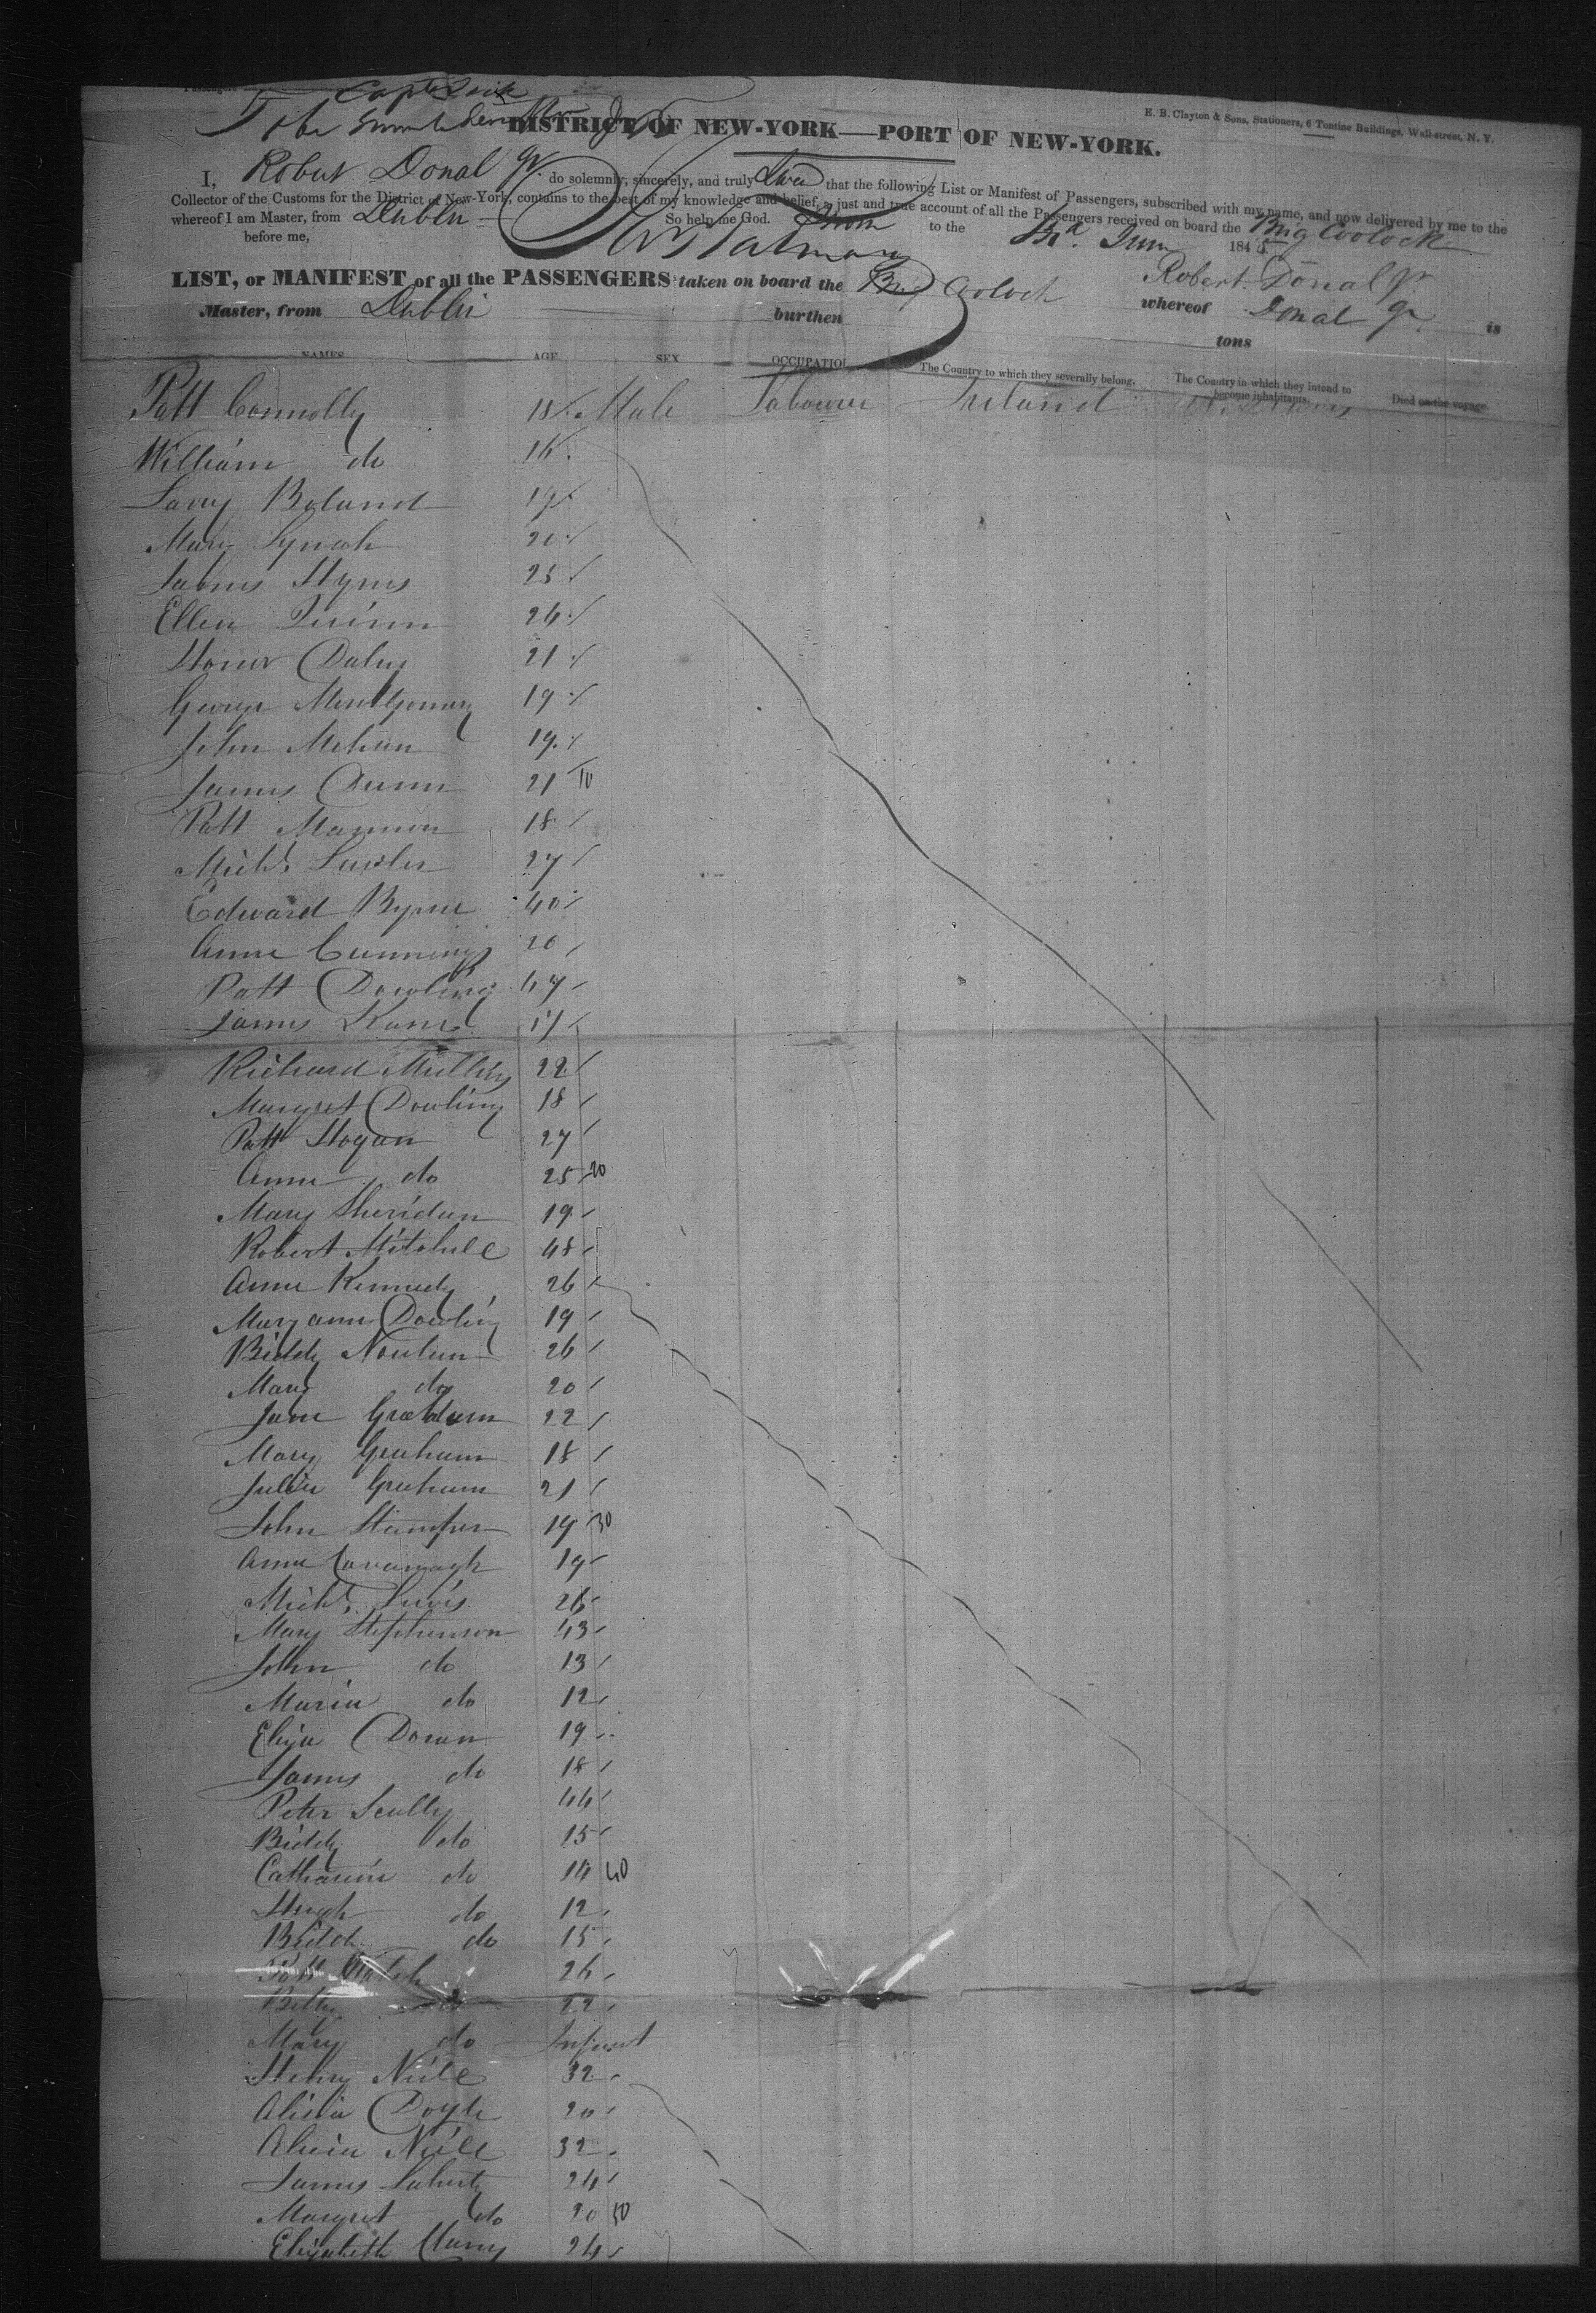 E. B. Clayton & Sons, Stationers, 6 Tontine Buildings, Wall-street, N. Y.
DISTRICT OF NEW-YORK—PORT OF NEW-YORK.
I, Robert Donal Jr. do solemnly, sincerely, and truly that the following List or Manifest of Passengers, subscribed with my name, and now delivered by me to the
Collector of the Customs for the District of New-York, contains to the best of my knowledge and belief, a just and true account of all the Passengers received on board the Brig Coolock
whereof I am Master, from Dublin So help me God.
before me, to the 184
Robert Donal Jr.
LIST, or MANIFEST of all the PASSENGERS taken on board the Brig Coolock whereof Donal Jr is
Master, from Dublin burthen tons
NAMES AGE SEX OCCUPATION The Country to which they severally belong. The Country in which they intend to become inhabitants. Died on the voyage.
Patt Connolly 18 Male Labourer Ireland
William do 16
Larry Boland 19
Mary Lynch
James Hynes 25
Ellen Quinn 24
Honor Daly 21
George Montgomery 19
John Mehan 19
James Dunn 21 10
Patt Mannion 18
Michl Lawler 27
Edward Byrne 40
Anne Cummings 20
Patt Dowling 47
James Kane 17
Richard Mullins 22
Margret Dowling 18
Patt Hogan 27
Anne do 25 20
Mary Sheridan 19
Robert Mitchell 48
Anne Kennedy 26
Mary anne Dowling 19
Biddy Noulan 26
Mary do 20
Jane Graham 22
Mary Graham 18
Julia Graham 21
John Stamper 19 30
Anne Cavanagh 19
Michl Lewis 26
Mary Stephenson 43
John do 13
Maria do 12
Eliza Doran 19
James do 18
Peter Scully 44
Biddy do 15
Catharin do 14 40
Hugh do 12
Bridd do 15
Patt 26
Betty 22
Mary do Infant
Henry Niele 32
Alicia Doyle 20
Alicia Niele 32
James Laherty 24
Margret do 20 50
Elizabeth 24